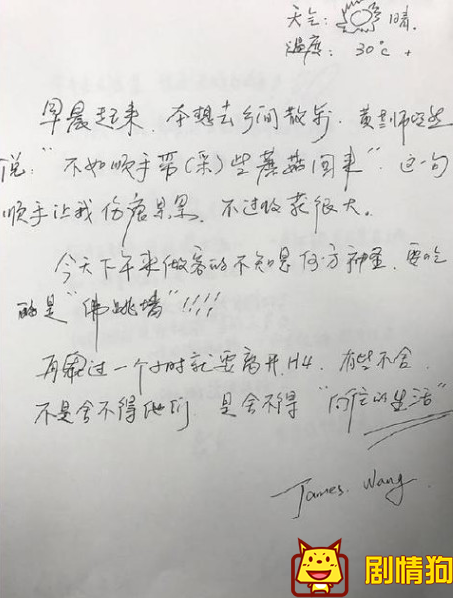 天气: 晴.
温度: 30℃ +
早晨起来,本想去乡间散步,黄老师
说:"不如顺手带(采)些蘑菇回来",这一句
顺手让我伤痕累累,不过收获很大。
今天下午来做客的不知是何方神圣,要吃
的是"佛跳墙"!!!!
再过一个小时就要离开H4,有些不舍
不是舍不得他们 是舍不得"向往的生活"
James. Wang.
剧情狗